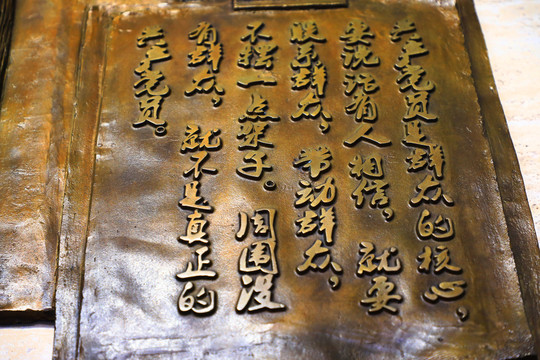 共产党员是群众的核心，
要说话有人相信，就要
联系群众，带动群众，
不摆一点架子。周围没
有群众，就不是真正的
共产党员。